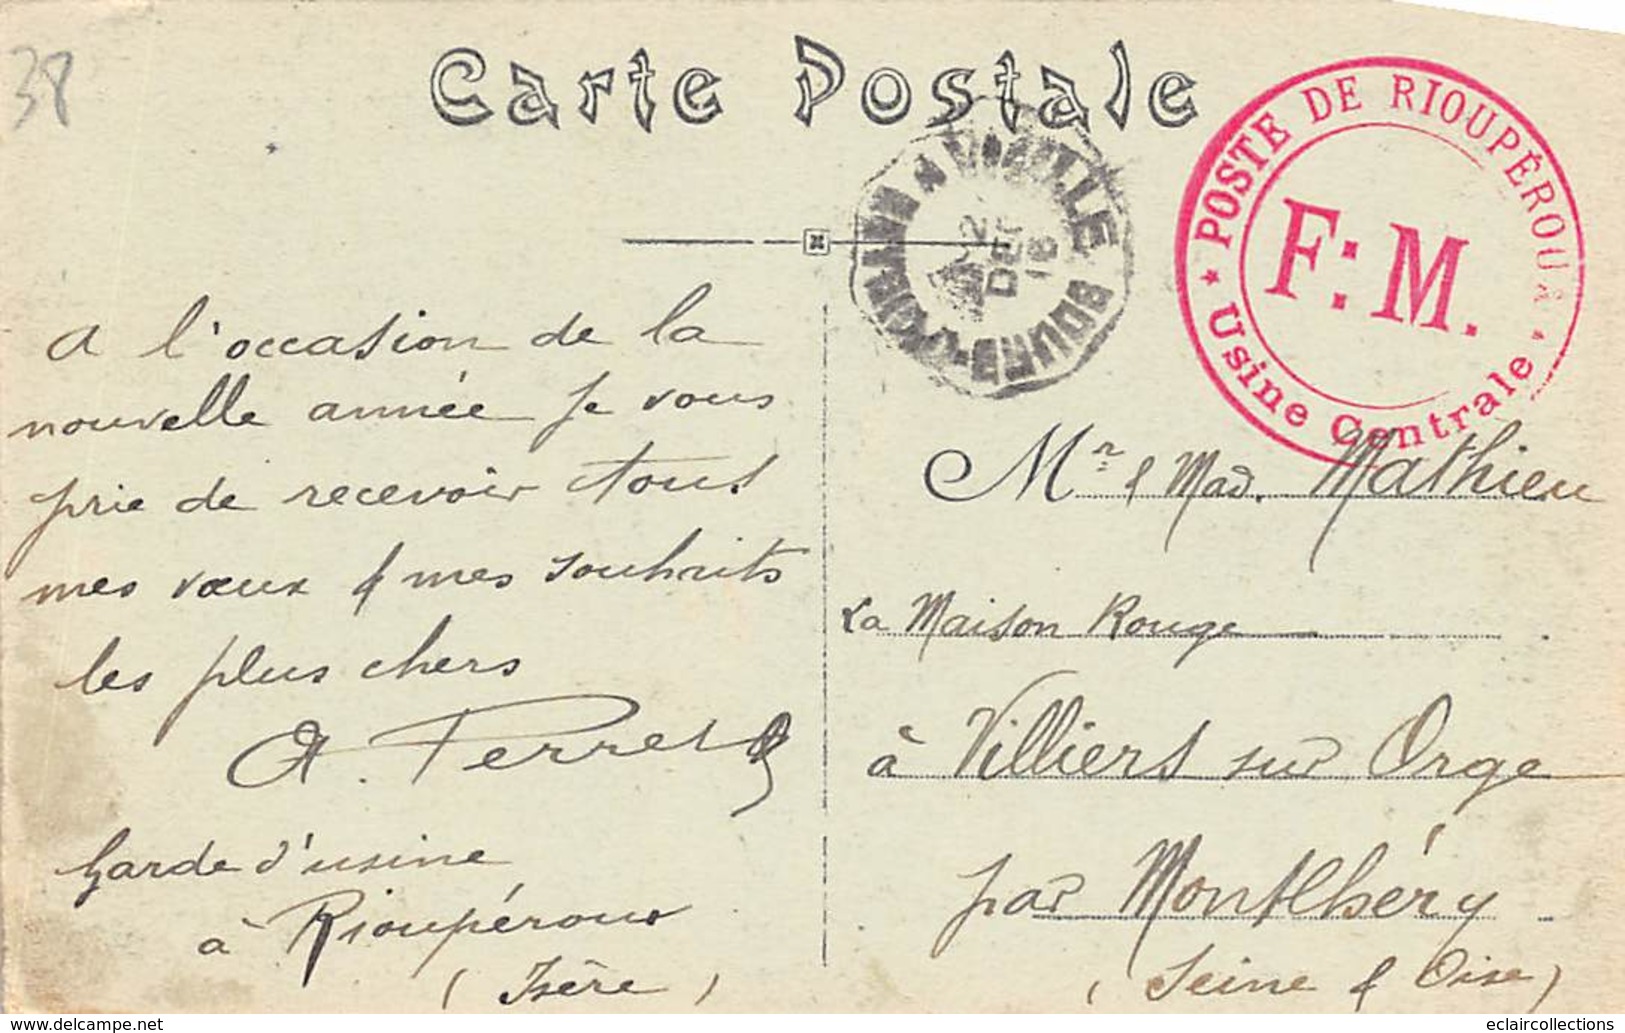 38
Carte Postale
POSTE DE RIOUPÉROUX
F: M.
Usine Centrale
2
DEC
A l'occasion de la
nouvelle année je vous
prie de recevoir tous
mes vœux & mes souhaits
les plus chers
A. Perret
Garde d'usine
à Rioupéroux
(Isère)
Mr & Mad. Mathieu
La Maison Rouge
à Villiers sur Orge
par Montlhéry
(Seine & Oise)
eclaircollections